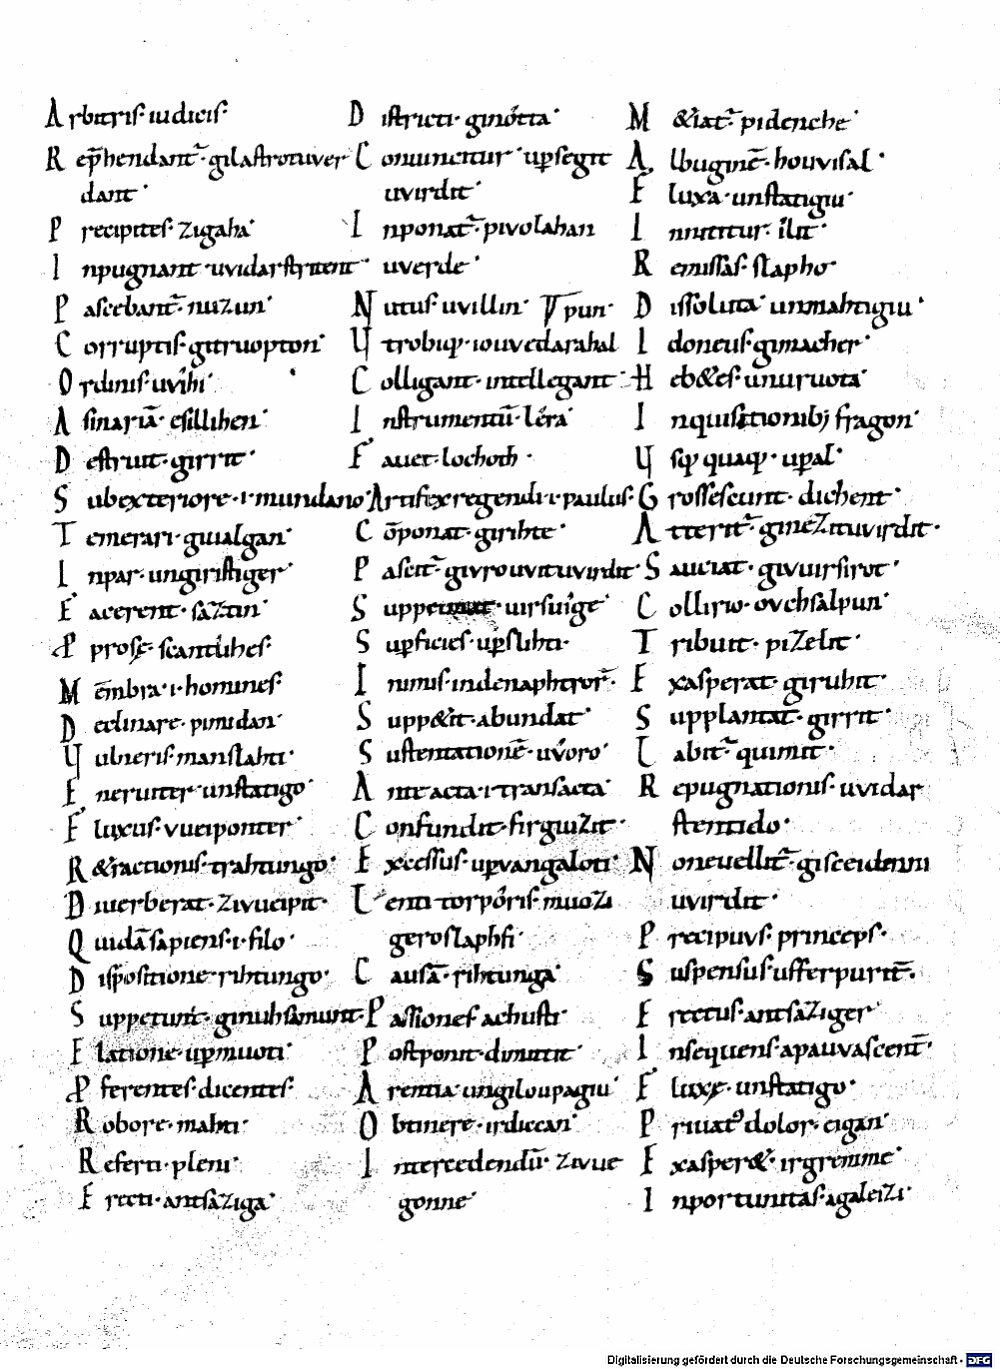 Arbitris· iudicis·
Rep̄hendant᷑· gilastrotuver
dant·
Precipites· zigaha·
Inpugnant· uvidarstritent·
Pascebant᷑· nuzun·
Corruptis· gitruopton·
Ordinis· uvihi·
Asinariā· esillihen·
Destruit· girrit·
Subexteriore· i· mundano·
Temerari· guialgan·
Inpar· ungiristiger·
Facerent· saztin·
Prosę·
Mēmbra· i· homines·
Declinare· pimidan·
Vulneris· manslahti·
Eneruiter· unstatigo·
Fluxus· vueiponter·
R&ractionis· trahtungo·
Diuerberat· zivueipit·
Quidā sapiens· i· filo·
Disp̄ositione· rihtungo·
Suppetunt· ginuhsamunt·
Elatione· up̱muoti·
Pferentes· dicentes·
Robore· mahti·
Referti· pleni·
Erecti· antsaziga·
Districti· ginótta·
Comuncitur· up̱segit
uvirdit·
Inponat᷑· pivolahan
uverde·
Nutus· uvillin· Vpun·
Vtrobiq; iouvedarahal
Colligant· intellegant·
Instrumentū· léra·
Fauet· lochoth·
Artifex regendi· i· paulus·
Cōponat· girihte·
Pascit᷑· givrouvituvirdit·
uirsuige·
Sup̱ficies· up̱slihti·
Nimis· indenaphtror᷑·
Supp&it· abundat·
Sustentationē· uvoro·
Ante acta· i· transacta·
Confundit· firgiuzit·
Excessus· up̱vangaloti·
Lenti torporis· muozi
geroslaphfi·
Causā· rihtunga·
Passiones· achusti·
Postponit· dimittit·
Arentia· ungiloupagiu·
Obtinere· irdiccan·
Intercedendū· zivue
gonne·
M&iat᷑· pidenche·
Albuginē· houvisal·
Fluxa· unstatigiu·
Innititur· ilit·
Remissas· slapho·
Dissoluta· unmahtigiu·
Idoneus· gimacher·
Heb&es· unuruota·
Inquisitionib; fragon·
Vsq; quaq; up̱al·
Grossescunt· dichent·
Atterit᷑· ginezituvirdit·
Sauciat· givuirsirot·
Collirio· ovchsalpun·
Tribuit· pizelit·
Exasperat· giruhit·
Supplantat· girrit·
Labit᷑· quimit·
Repugnationis· uvidar
stentido·
Noneuellit᷑· gisceidenni
uvirdit·
Precipuus· princeps·
Suspensus ufferpurit̄·
Erectus· antsaziger·
Insequens· apauvascent̄·
Fluxę· unstatigo·
Priuat᷒ dolor· eigan·
Exasper&· irgremme·
Inportunitas· agaleizi·